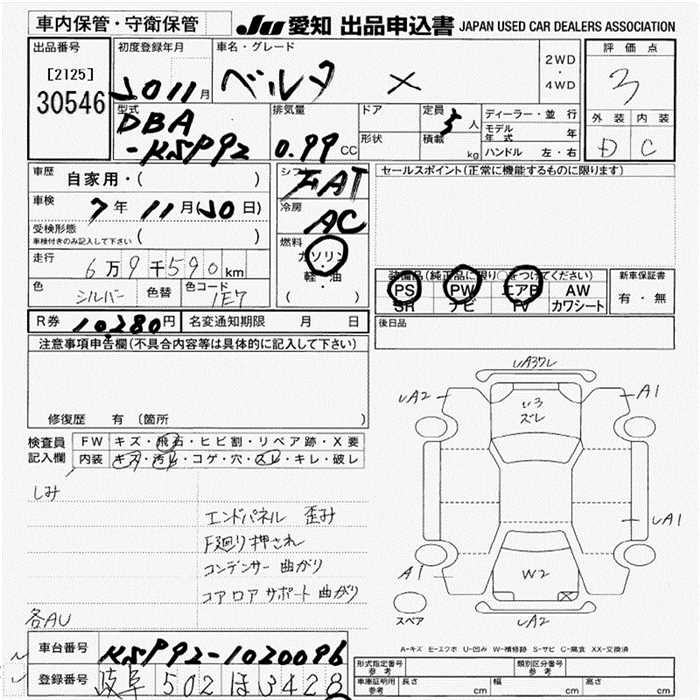 車内保管・守衛保管
JU 愛知 出品申込書 JAPAN USED CAR DEALERS ASSOCIATION
出品番号
[2125]
30546
初度登録年月
J0 11月
車名・グレード
ベルタ X
2WD
・
4WD
評価点
3
外装 内装
D C
型式
DBA
-KSP92
排気量
0.99 CC
ドア
形状
定員
5人
積載
kg
ディーラー・並行
モデル
年式 年
ハンドル 左・右
車歴
自家用・( )
車検
7年 11月(J0日)
受検形態
車検付きのみ記入して下さい ( )
走行
6万9千590km
色
シルバー
色替
色コード
1E7
シフト
FAT
冷房
AC
燃料
ガソリン
・
軽・油
( )
セールスポイント(正常に機能するものに限ります)
装備品(純正品に限り○をつけてください)
PS PW エアB AW
SR ナビ TV カワシート
新車保証書
有・無
後日品
R券 10,280円
名変通知期限 月 日
注意事項申告欄(不具合内容等は具体的に記入して下さい)
修復歴 有(箇所 )
検査員
記入欄
FW キズ・飛石・ヒビ割・リペア跡・X要
内装 キズ・汚れ・コゲ・穴・スレ・キレ・破レ
しみ
エンドパネル 歪み
F廻り押され
コンデンサー 曲がり
コアロアサポート曲がり
各AU
UA2
A1
U3
ズレ
UA1
A1
W2
X
UA2
スペア
A-キズ E-エクボ U-凹み W-補修跡 S-サビ C-腐食 XX-交換済
車台番号
KSP92-1020096
登録番号
岐阜 502 ほ 3428
形式指定番号
参考
類別区分番号
参考
車庫証明用
参考
長さ cm
幅 cm
高さ cm